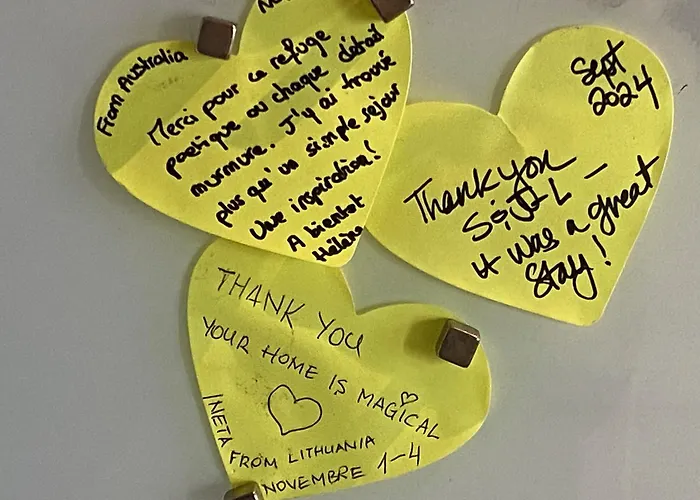 From Australia
Merci pour ce refuge
poetique ou chaque détail
murmure. J'y ai trouvé
plus qu'un simple sejour
Une inspiration!
A bientot
Hélène
Sept
2024
Thank you
It was a great
stay!
THANK YOU
YOUR HOME IS MAGICAL
INETA
FROM LITHUANIA
NOVEMBRE 1-4